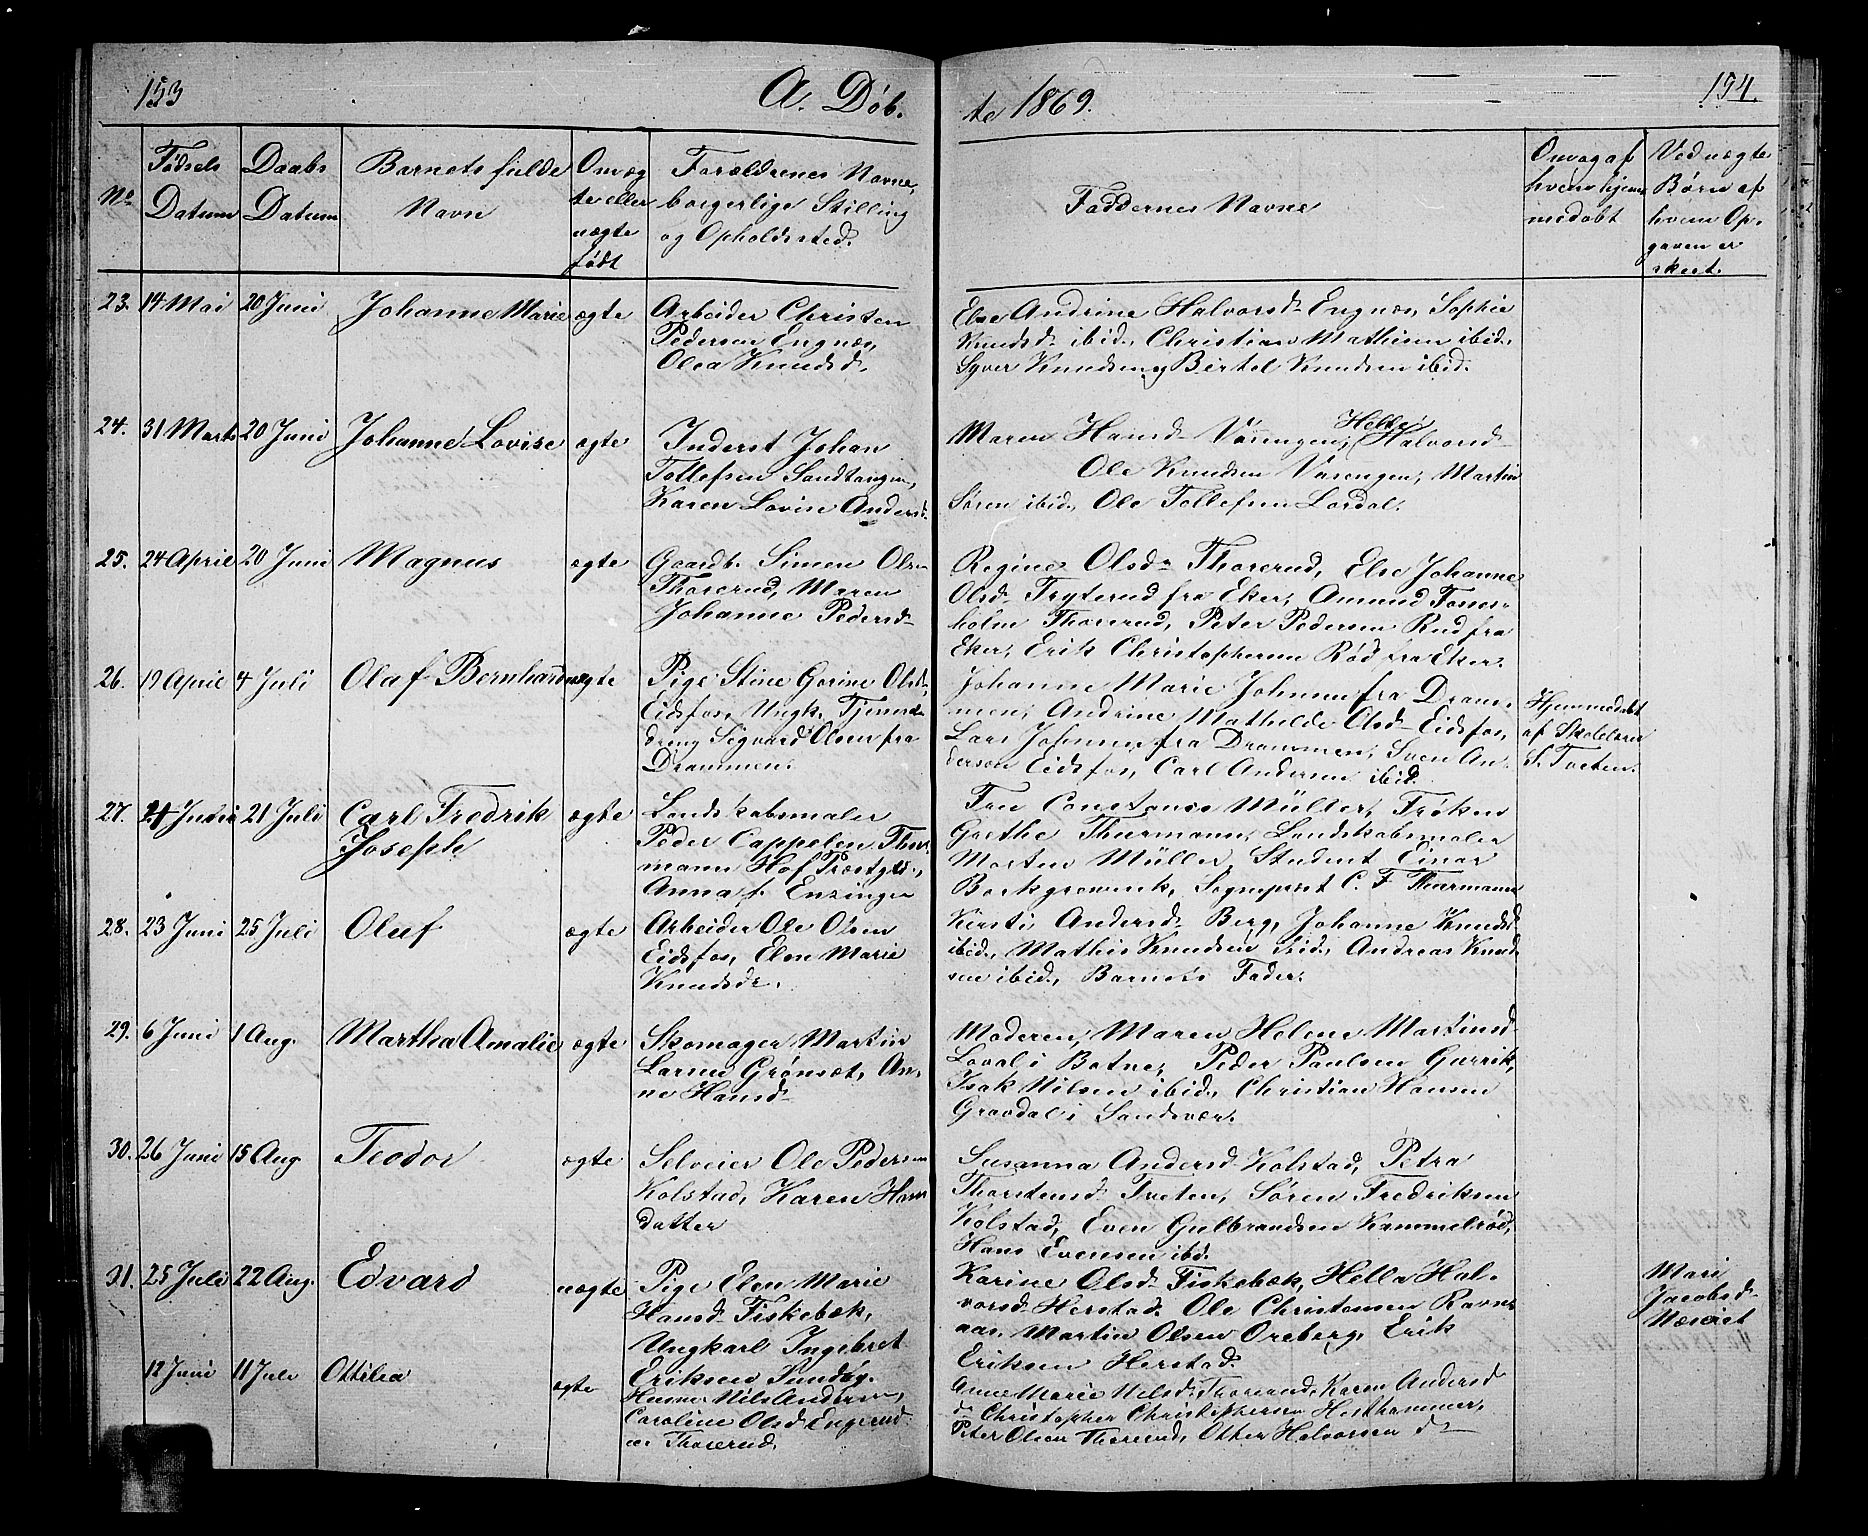 153
A. Døb.
te 1869.
154.
No
Fødsels Datum
Daabs Datum
Barnets fulde Navn
Om æg
te eller
uægte
født
Forældrenes Navne,
borgerlige Stilling
og Opholdssted.
Faddernes Navne
Om og af
hvem hjem
medøbt
Ved uægte
Børn af
hvem Op-
gaven er
skeet.
23. 14 Mai 20 Juni Johanne Marie ægte
Arbeider Christen
Pedersen Engnæs,
Olea Knudsd.
Else Andrine Halvorsd Engnæs, Sophie
Knudsd ibid., Christian Mathisen ibid.,
Syver Knudsen og Bertel Knudsen ibid.
24. 31 Marts 20 Juni Johanne Lovise ægte
Inderst Johan
Tollefsen Sandtangen,
Karen Lovise Andersd.
Maren Hansd Vørengen, Helle Halvorsd
Ole Knudsen Vørengen, Martin
Søren ibid., Ole Tollefsen Lordal.
25. 24 April 20 Juni Magnus ægte
Gaardb. Simen Olsen
Thorerud, Maren
Johanne Pedersd
Regine Olsd Thorerud, Else Johanne
Olsd Fryterud fra Eker, Amund Tones-
holm Thorerud, Peter Pedersen Rud fra
Eker, Erik Christophersen Rød fra Eker.
26. 19 April 4 Juli Olaf Bernhard uægte
Pige Stine Gorine Olsd,
Eidsfos, Ungk. Tjeneste
dreng Sigvard Olsen fra
Drammen.
Johanne Marie Johnsen fra Dram-
men, Andrine Mathilde Olsd Eidsfos,
Lars Johnsen fra Drammen, Sven An-
derson Eidsfos, Carl Andersen ibid.
Hjemmedøbt
af Skolelærer
S. Tveten.
27. 21 Juli Carl Fredrik
Joseph ægte
Landskabsmaler
Peder Cappelen Thur
mann Hof Præstgrd.,
Anna f. Enzinger
Fru Constance Müller, Frøken
Grethe Thurmann, Landskabsmaler
Morten Müller, Student Einar
Borkgrevink, Sogneprest C. F Thurmann
28. 23 Juni 25 Juli Oluf ægte
Arbeider Ole Olsen
Eidsfos, Elen Marie
Knudsdr.
Kirsti Andersd Berg, Johanne Knudsd
ibid., Mathis Knudsen ibid., Andreas Knud
sen ibid., Barnets Fader.
29. 6 Juni 1 Aug. Martha Amalie ægte
Skomager Martin
Larsen Grønsæt, An-
ne Hansd
Moderen, Maren Helene Martinsd
Loval i Botne, Peder Paulsen Gurrik,
Isak Nilsen ibid., Christian Hansen
Gravdal i Sandsvær.
30. 26 Juni 15 Aug Teodor ægte
Selveier Ole Pedersen
Kolstad, Karen Hans
datter
Susanna Andersd Kolstad, Petra
Thorstensd Tveten, Søren Fredriksen
Kolstad, Even Gulbrandsen Kammelrød,
Hans Evensen ibid.
31. 25 Juli 22 Aug. Edvard uægte
Pige Elen Marie
Hansd Fiskebæk,
Ungkarl Ingebret
Eriksen Sundby.
Karine Olsd Fiskebæk, Hella Hal-
vorsd Herstad, Ole Christensen Ravn-
aas, Martin Olsen Oreberg, Erik
Eriksen Herstad.
Mari
Jacobsd
Næseiet
12 Juni 11 Juli Ottilia ægte
Husm. Nils Andersen,
Caroline Olsd Engerud
Thorerud,
Anne Marie Nilsd Thorerud, Karen Andersd
do Christopher Christophersen Hesthammer,
Peter Olsen Thorerud, Otter Halvorsen do